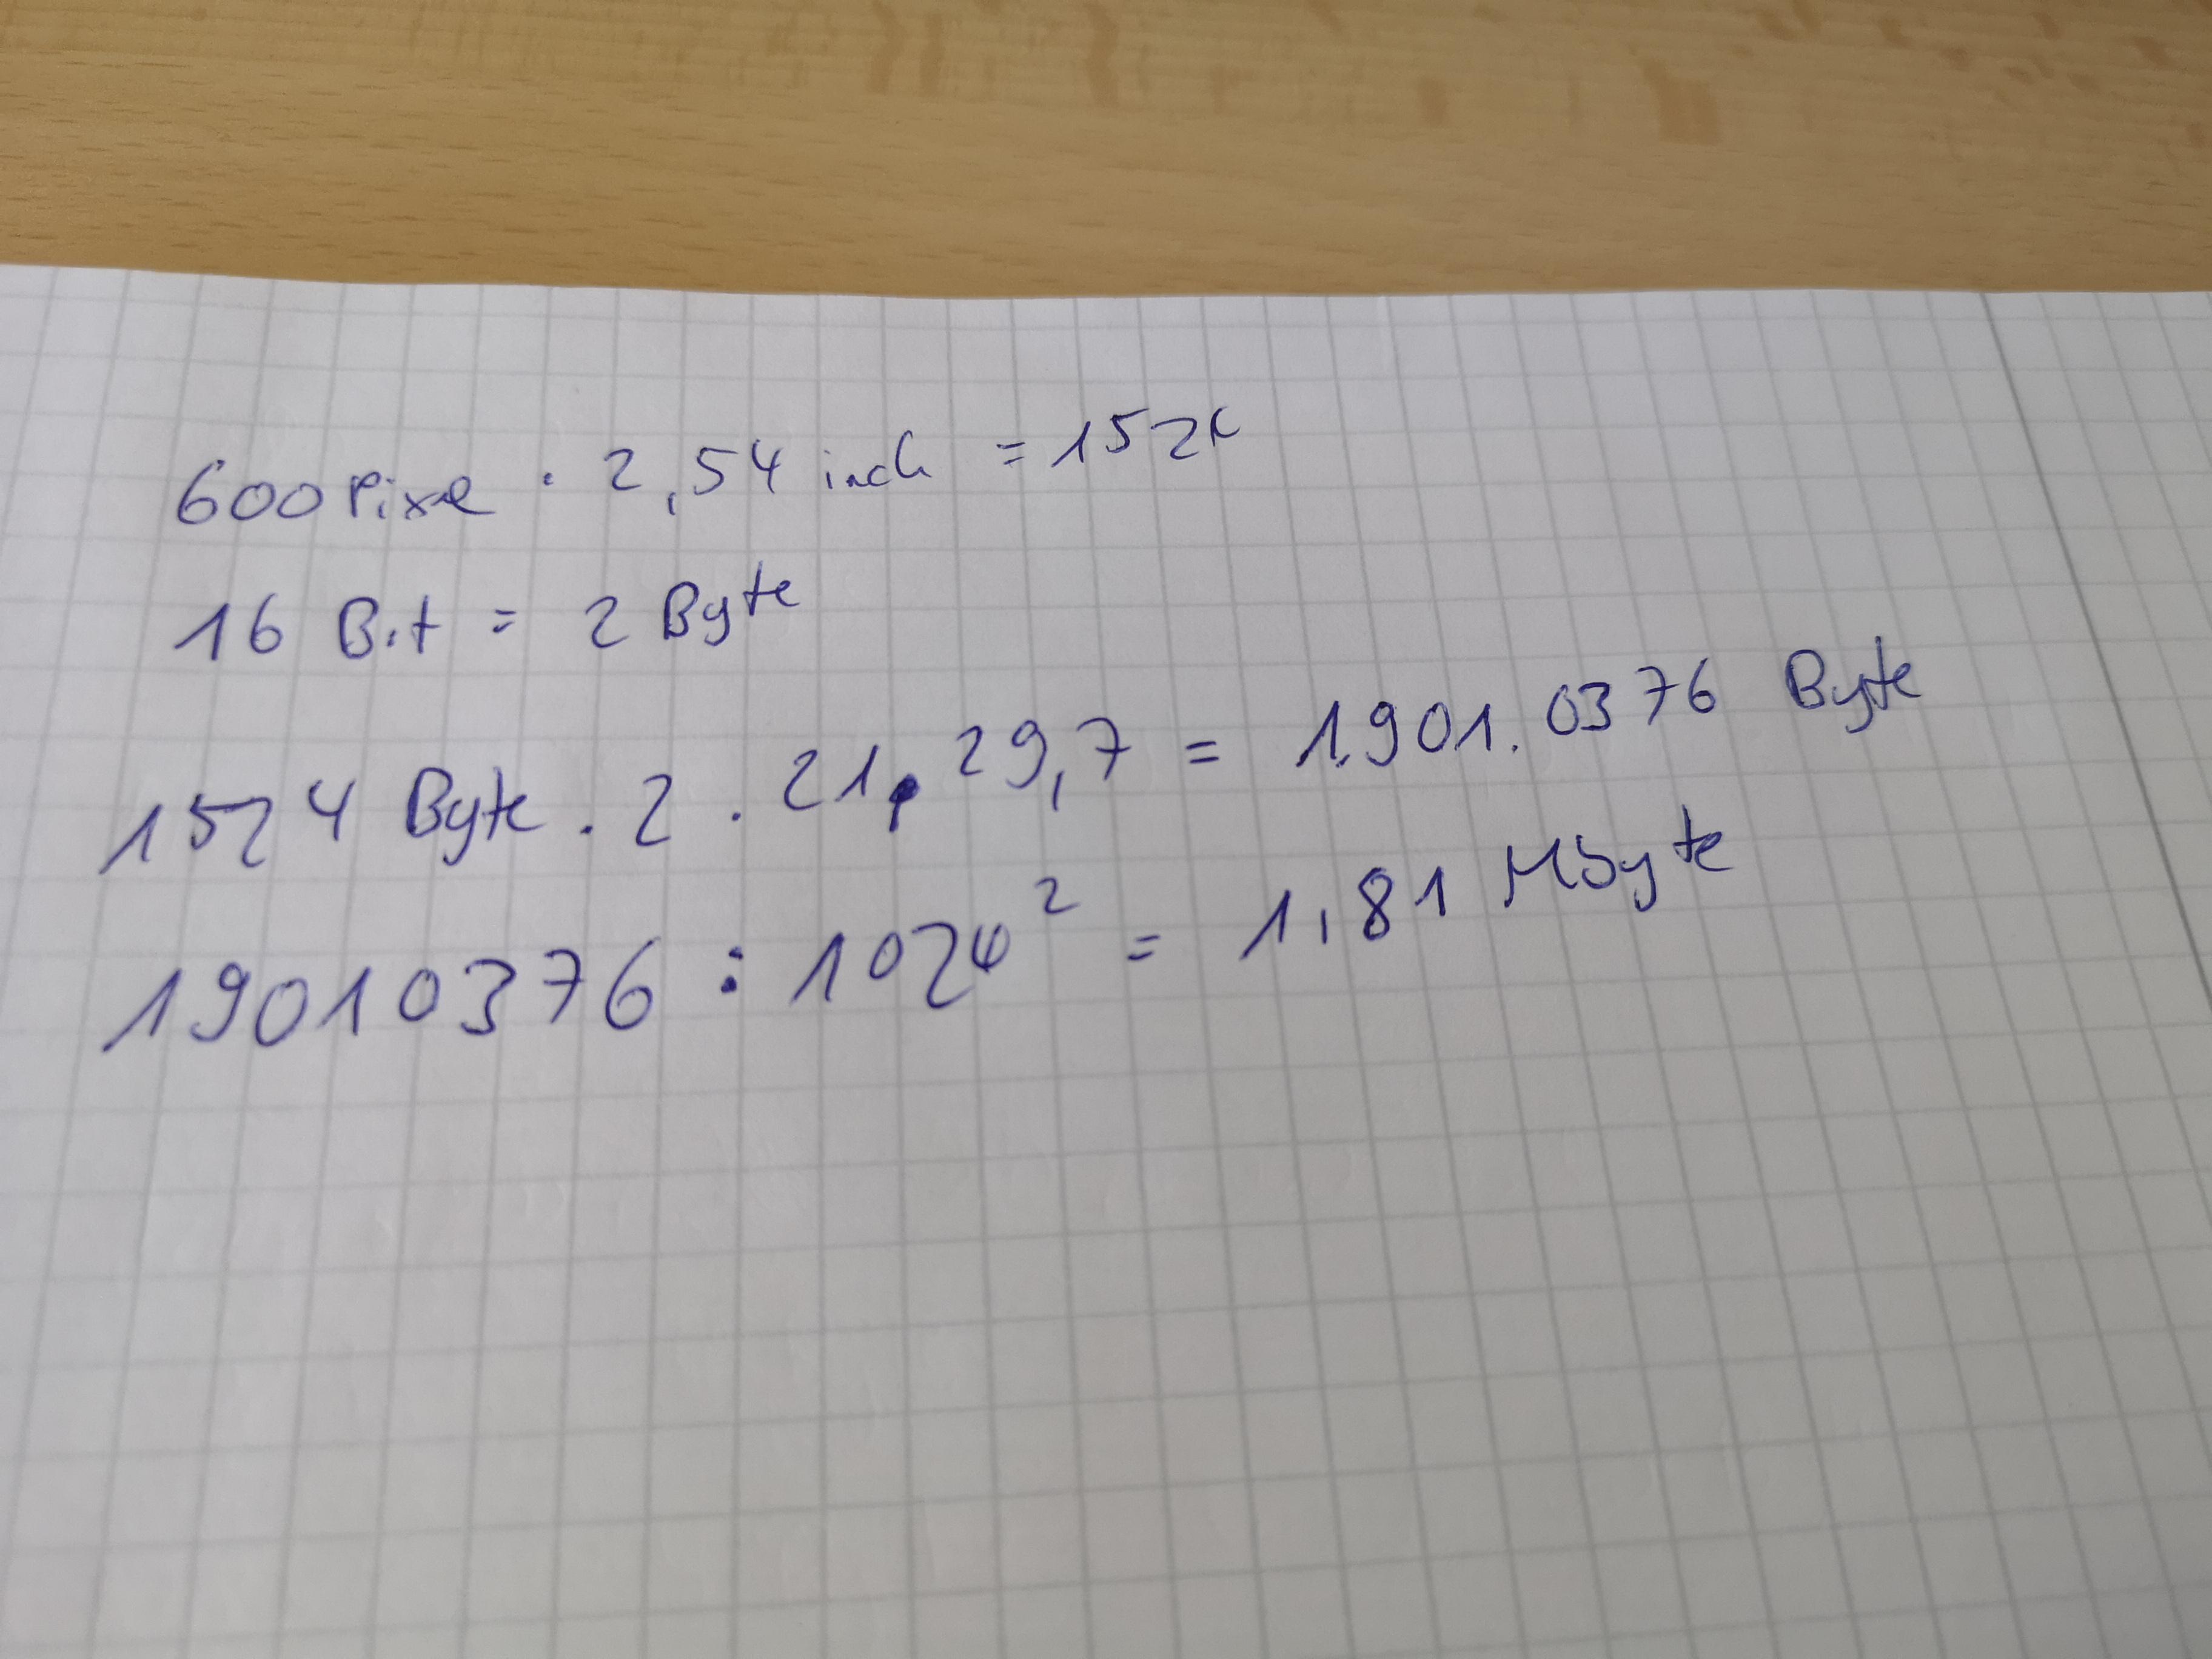 600 Pixel · 2,54 inch = 1524
16 Bit = 2 Byte
1524 Byte · 2 · 21 · 29,7 = 1.901.0376 Byte
19010376 : 1024² = 1,81 Mbyte